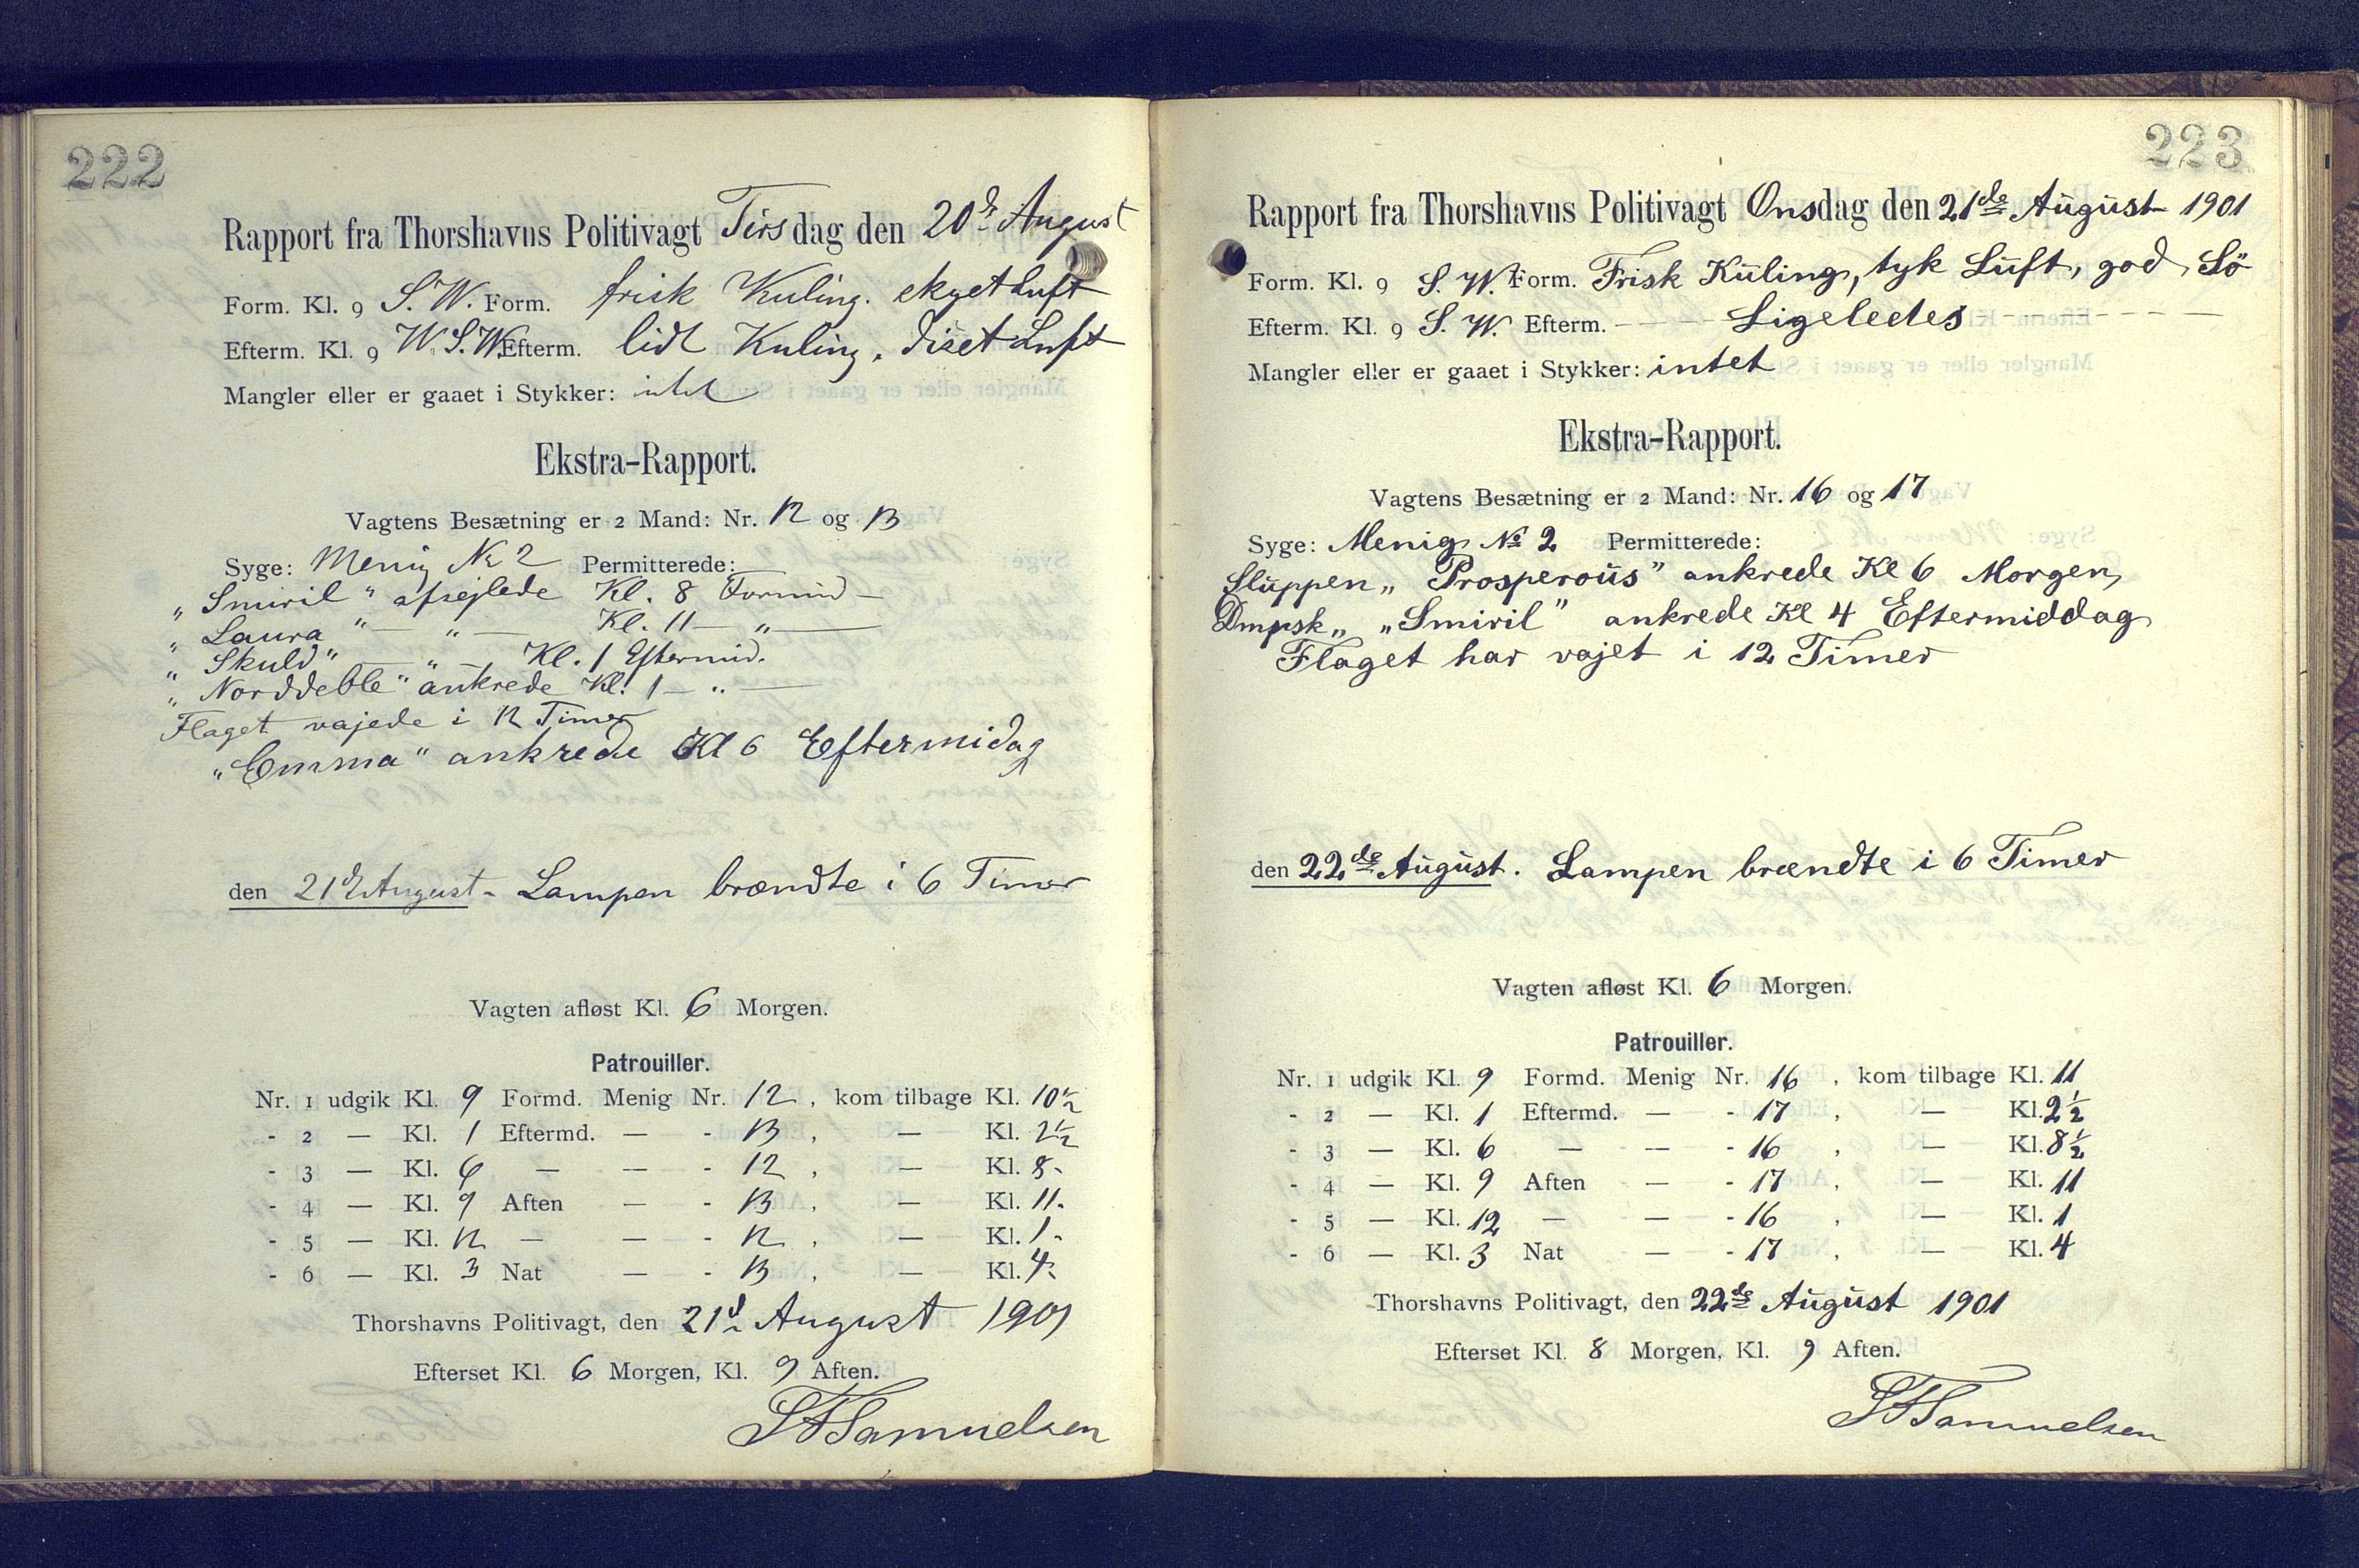 222
Rapport fra Thorshavns Politivagt Tirsdag den 20de August
Form. Kl. 9 S.W. Form. frisk Kuling. skyet Luft
Efterm. Kl. 9 W.S.W. Efterm. lidt Kuling. diset Luft
Mangler eller er gaaet i Stykker: intet
Ekstra-Rapport.
Vagtens Besætning er 2 Mand: Nr. 12 og 13
Syge: Menig No 2 Permitterede:
"Smiril" afsejlede Kl. 8 Formid —
"Laura" — " — Kl. 11 — " —
"Skuld" — " — Kl. 1 Eftermid.
"Norddeble" ankrede Kl. 1 — " —
Flaget vajede i 12 Timer
"Emma" ankrede Kl 6 Eftermidag
den 21de August - Lampen brændte i 6 Timer
Vagten afløst Kl. 6 Morgen.
Patrouiller.
Nr. 1 udgik Kl. 9 Formd. Menig Nr. 12, kom tilbage Kl. 10½
- 2 — Kl. 1 Eftermd. — - 13, — Kl. 2½
- 3 — Kl. 6 — — - 12, — Kl. 8-
- 4 — Kl. 9 Aften — - 13, — Kl. 11-
- 5 — Kl. 12 — — - 12, — Kl. 1-
- 6 — Kl. 3 Nat — - 13, — Kl. 4-
Thorshavns Politivagt, den 21de August 1901
Efterset Kl. 6 Morgen, Kl. 9 Aften.
Samuelsen
223
Rapport fra Thorshavns Politivagt Onsdag den 21de August 1901
Form. Kl. 9 S. W. Form. Frisk Kuling, tyk Luft, god Sö
Efterm. Kl. 9 S. W. Efterm. - - - - Ligeledes - - - -
Mangler eller er gaaet i Stykker: intet
Ekstra-Rapport.
Vagtens Besætning er 2 Mand: Nr. 16 og 17
Syge: Menig No 2 Permitterede:
Sluppen „Prosperous" ankrede Kl 6 Morgen,
Dmpsk„ „Smiril" ankrede Kl 4 Eftermiddag
Flaget har vajet i 12 Timer
den 22de August. Lampen brændte i 6 Timer
Vagten afløst Kl. 6 Morgen.
Patrouiller.
Nr. 1 udgik Kl. 9 Formd. Menig Nr. 16, kom tilbage Kl. 11
- 2 — Kl. 1 Eftermd. — - 17, — Kl. 2½
- 3 — Kl. 6 — — - 16, — Kl. 8½
- 4 — Kl. 9 Aften — - 17, — Kl. 11
- 5 — Kl. 12 — — - 16, — Kl. 1
- 6 — Kl. 3 Nat — - 17, — Kl. 4
Thorshavns Politivagt, den 22de August 1901
Efterset Kl. 8 Morgen, Kl. 9 Aften.
Samuelsen